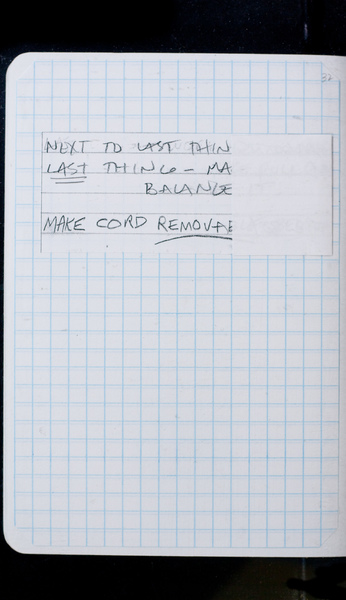 32
NEXT TO LAST THIN
LAST THING - MA
BALANCE
MAKE CORD REMOVAB